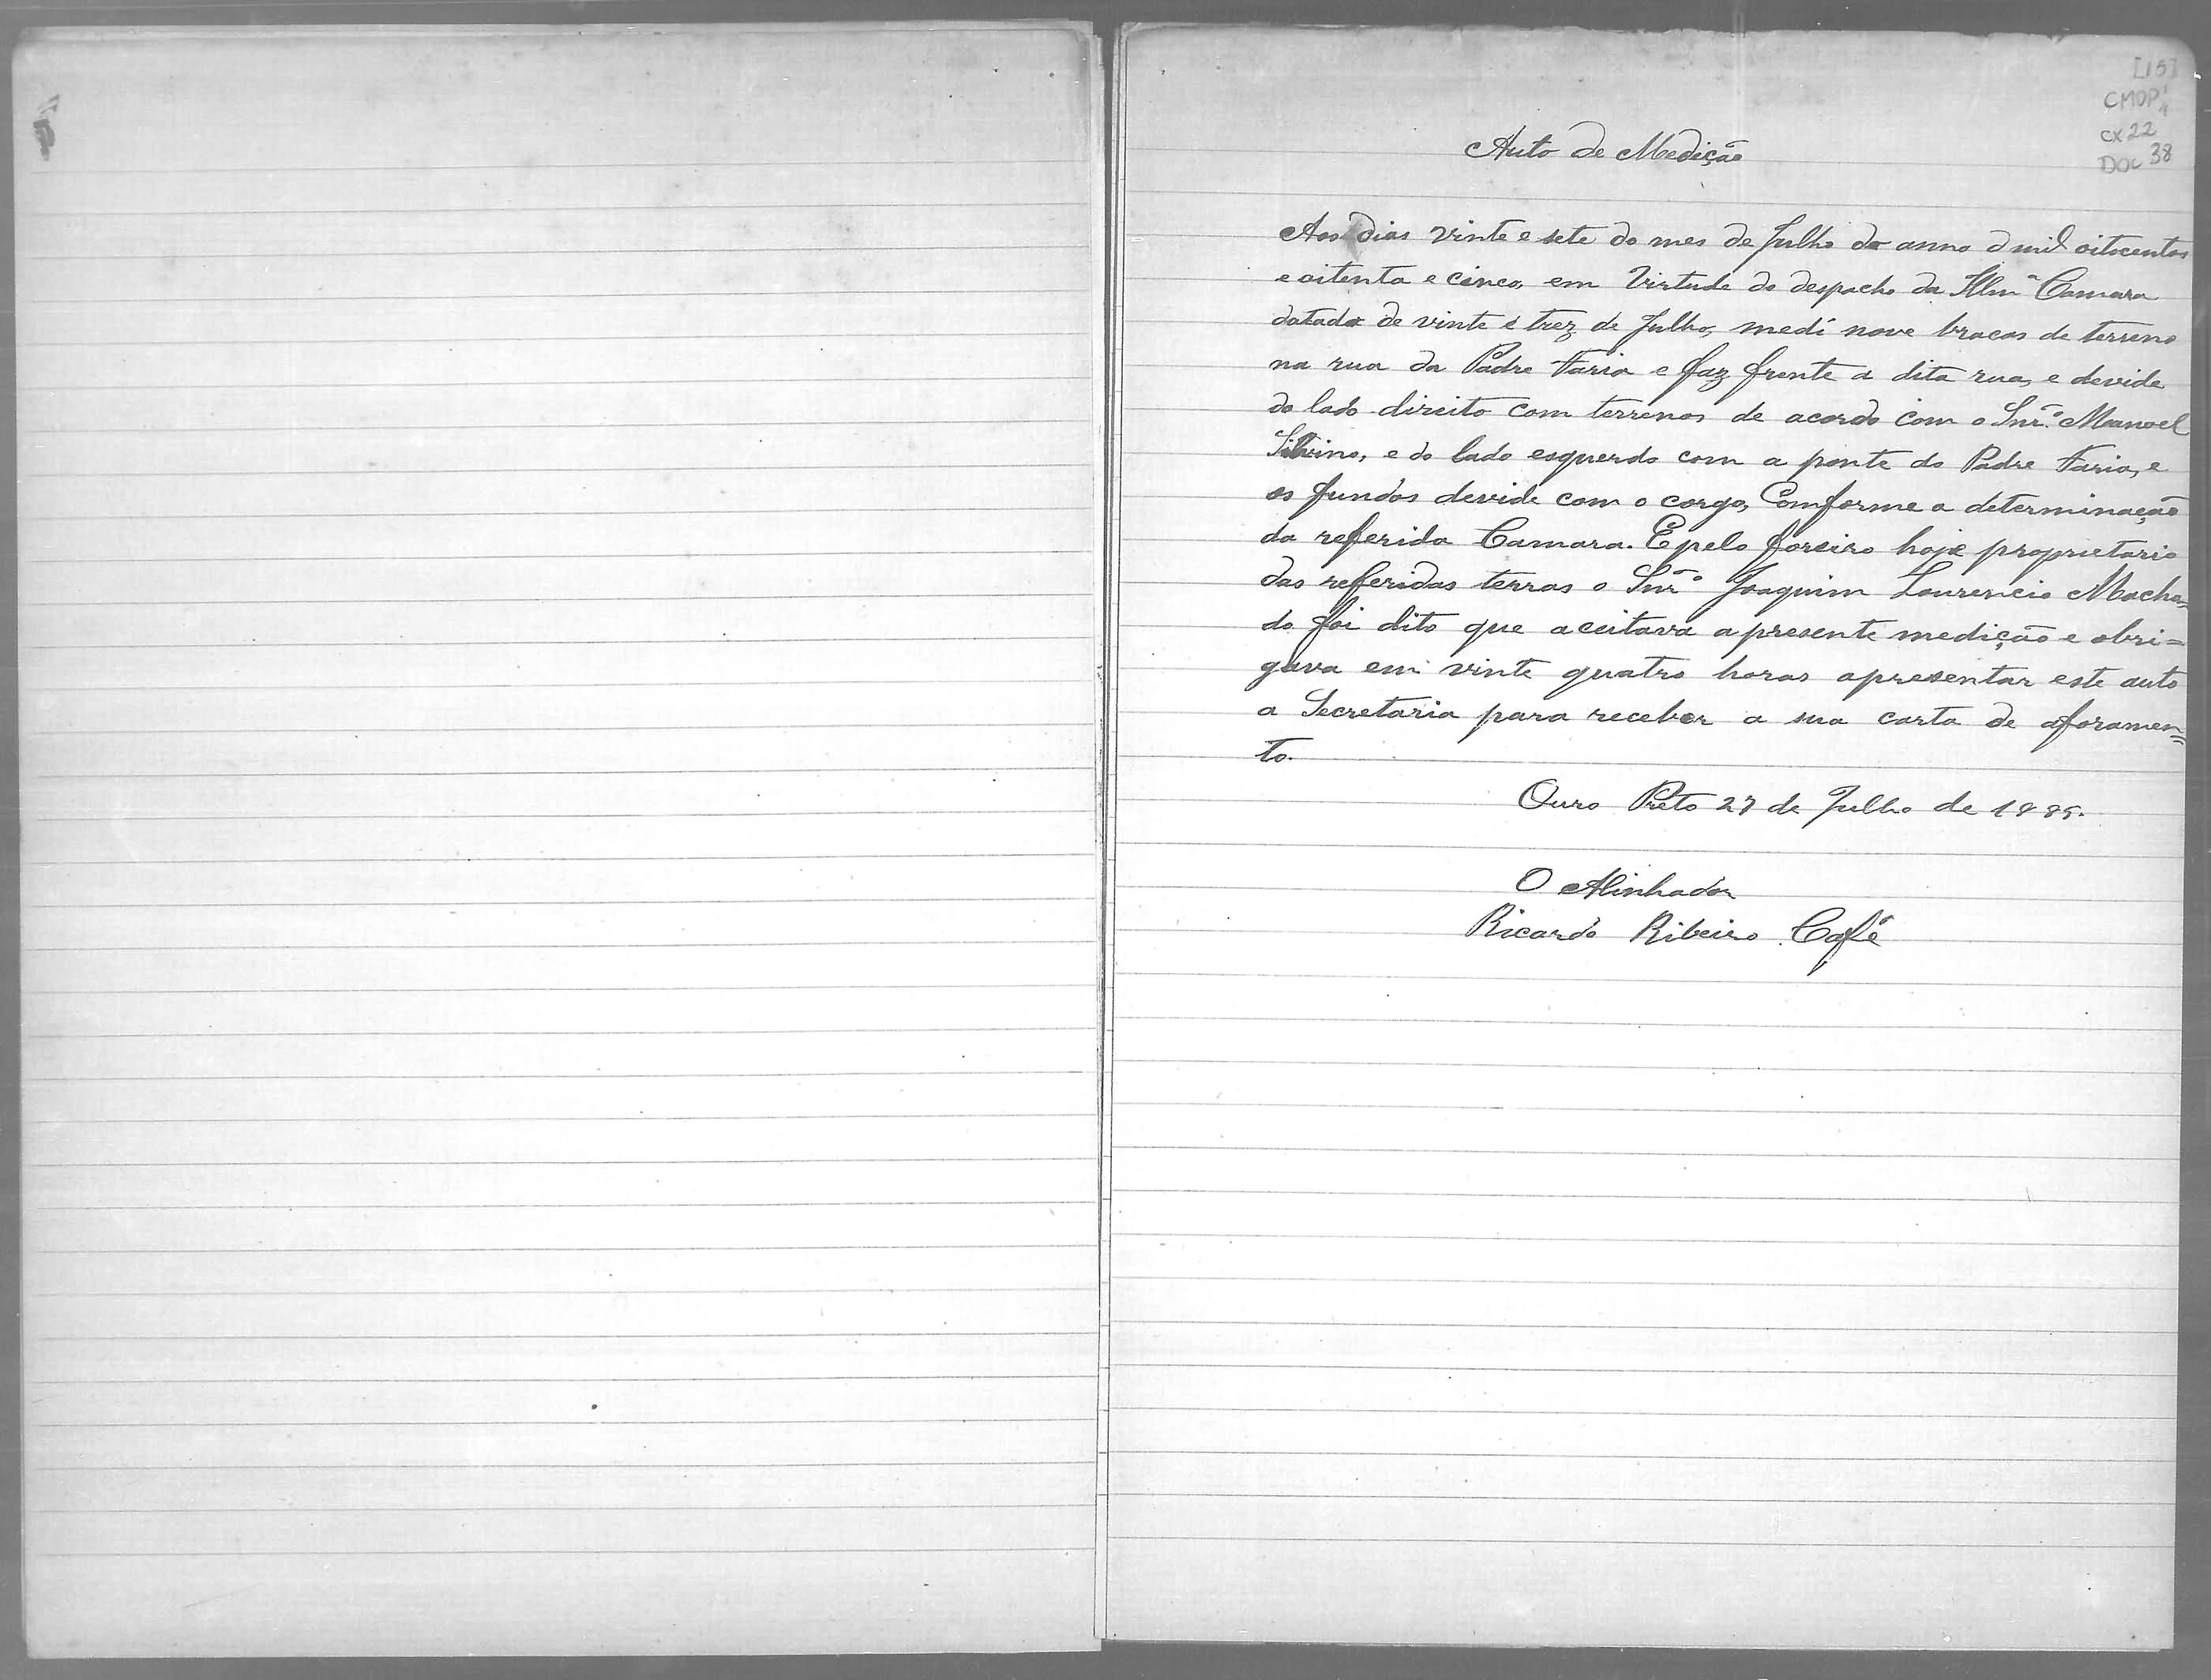 [15]
CMOP
cx 22
DOC 38
Auto de Medição
Aos dias vinte e sete do mes de Julho do anno d mil oitocentos
e oitenta e cinco, em Virtude do despacho da Illmª Camara
datado de vinte e trez de Julho, medí nove bracas de terreno
na rua da Padre Faria e faz frente a dita rua, e devide
do lado direito com terrenos de acordo com o Snr.º Manoel
Silvino, e do lado esquerdo com a ponte do Padre Faria, e
os fundos devide com o corgo, Comforme a determinação
da referida Camara. E pelo foreiro hoje proprietario
das referidas terras o Snrº Joaquim Lourencio Macha=
do foi dito que aceitava a presente medição e obri=
gava em vinte quatro horas apresentar este auto
a Secretaria para receber a sua carta de aforamen=
to.
Ouro Preto 27 de Julho de 1885.
O Alinhador
Ricardo Ribeiro Café